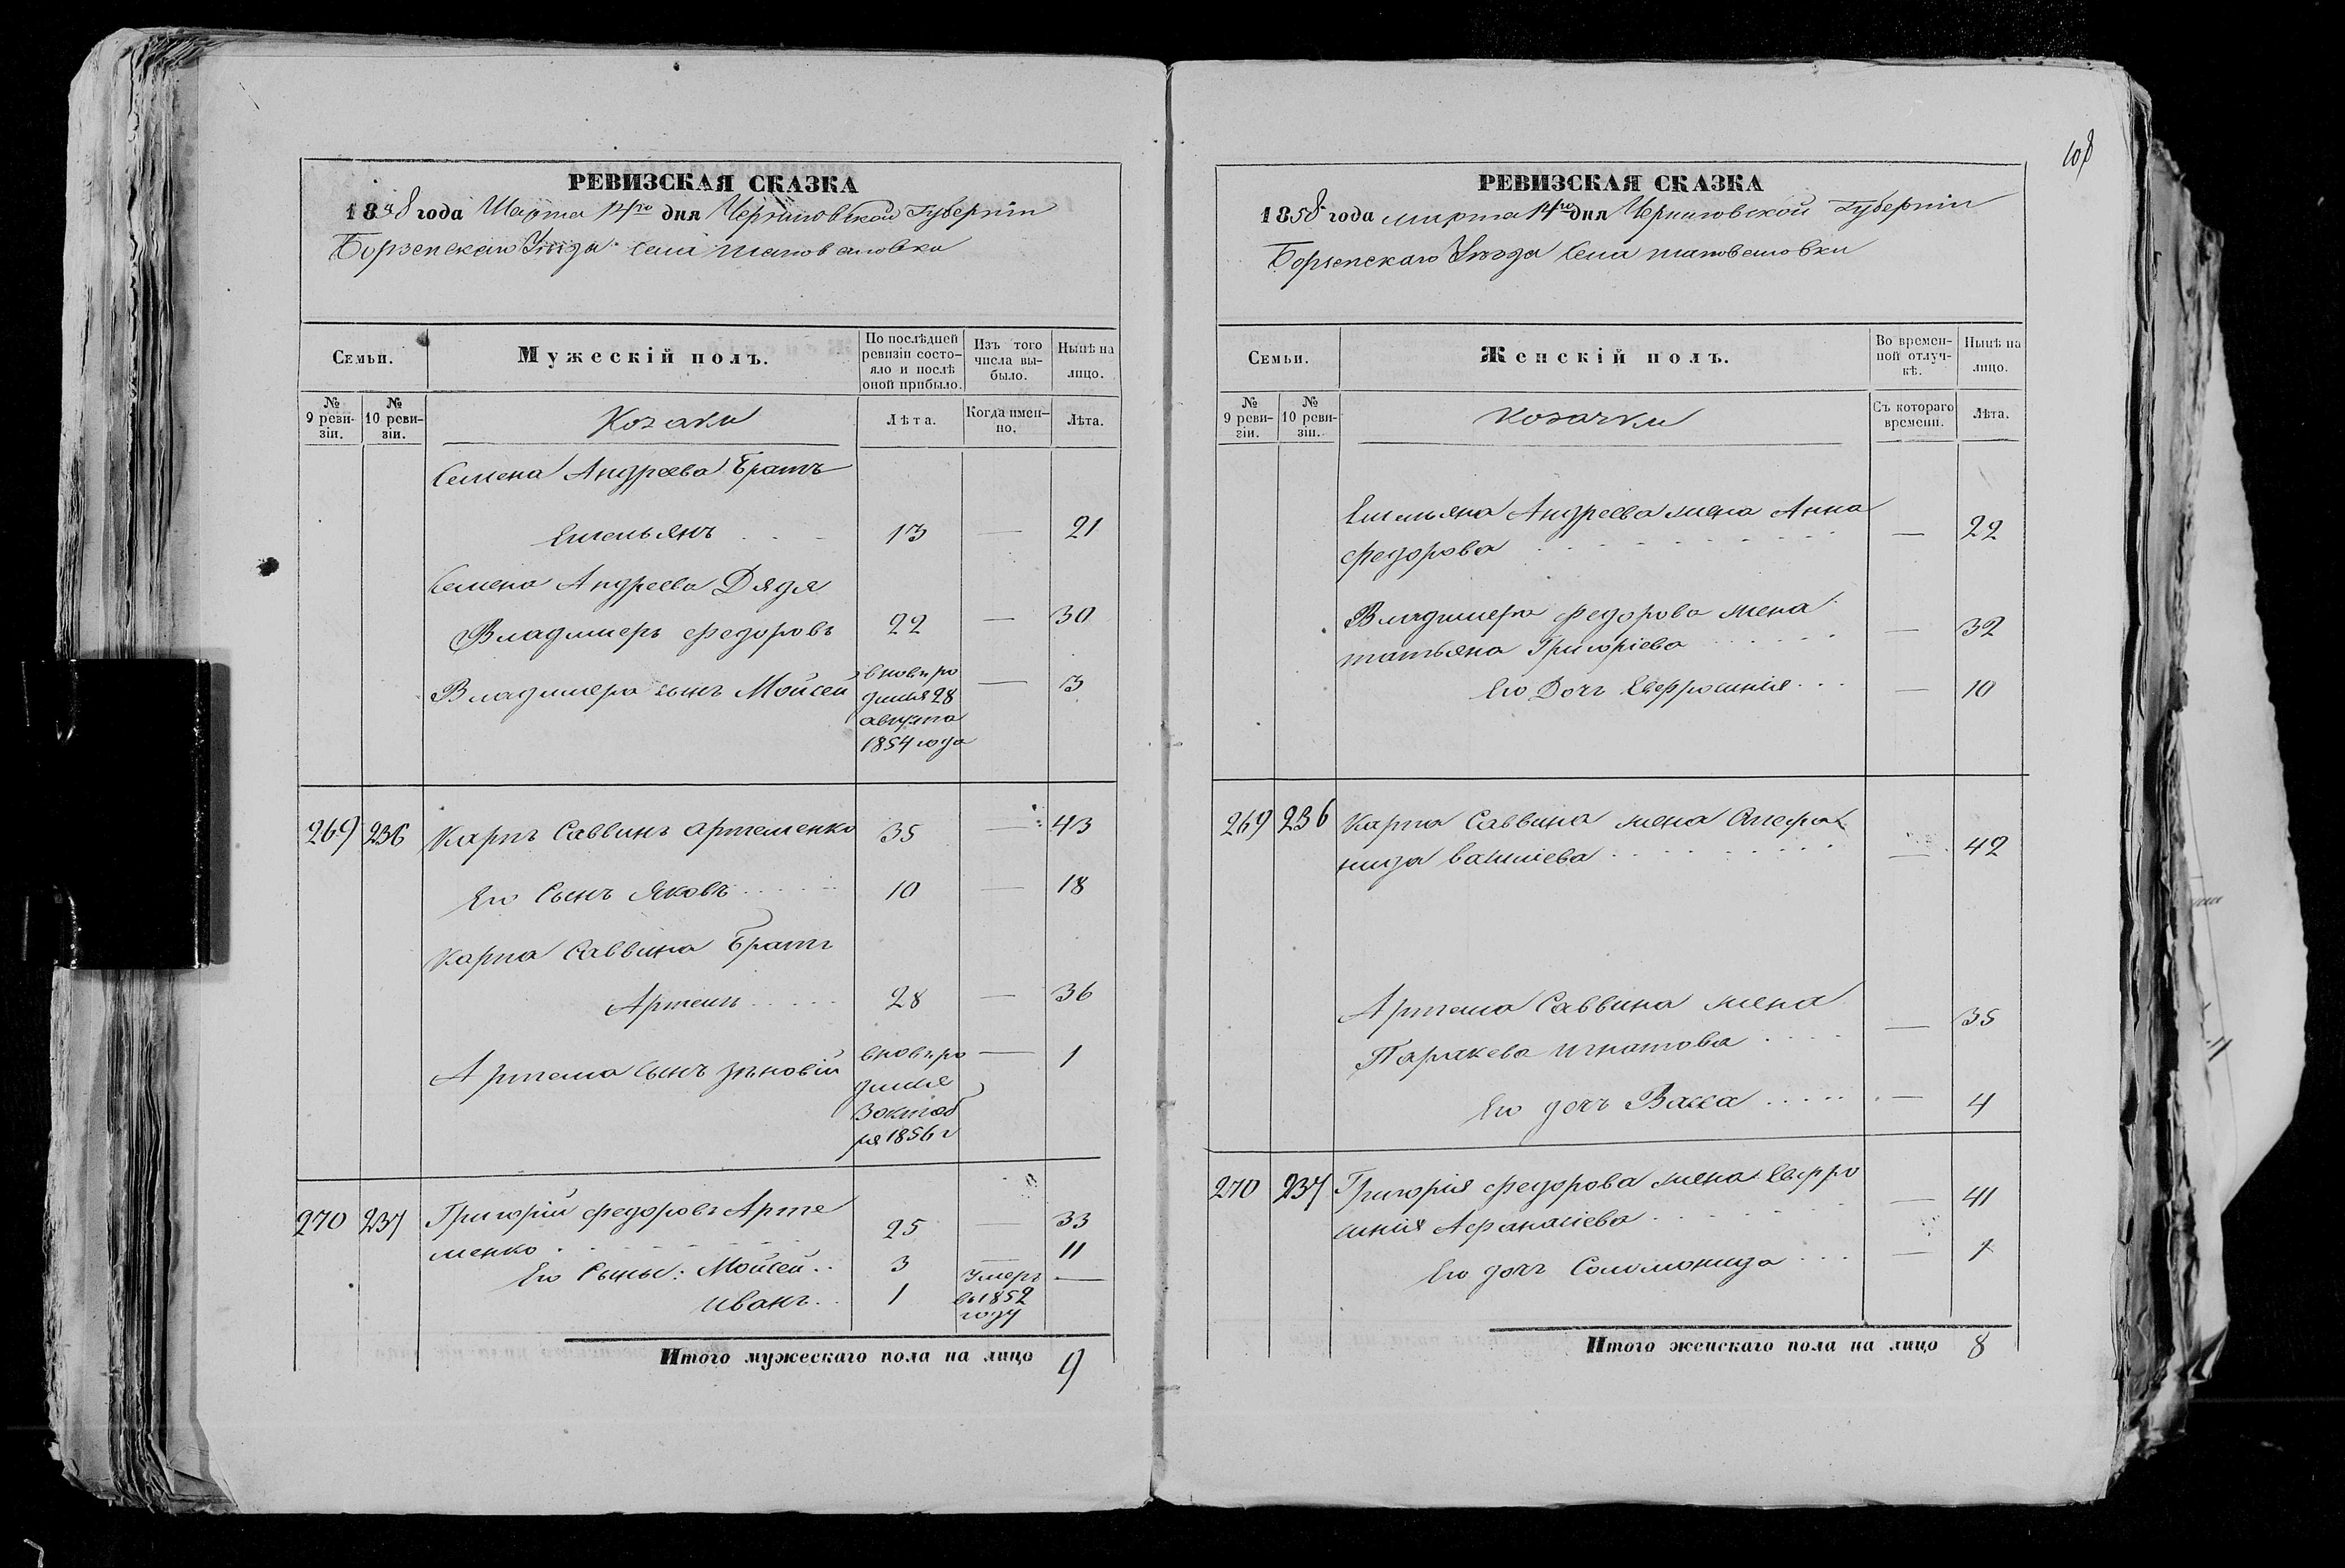 РЕВИЗСКАЯ СКАЗКА
1858 года Марта 14го дня Черниговской Губернiи
Борзенскаго Уѣзда Села Шаповаловки
Семьи.
Мужескiй полъ.
По послѣдней ревизiи состо-
яло и послѣ
оной прибыло.
Изъ того
числа вы-
было.
Нынѣ на
лицо.
№
9 реви-
зiи.
№
10 реви-
зiи.
Козаки
Лѣта.
Когда имен-
но.
Лѣта.
Семена Андреева Братъ
Емельянъ 13 — 21
Семена Андреева Дядя
Владимеръ Федоровъ 22 — 30
Владимера сынъ Мойсей
вновь ро
дился 28
августа
1854 года
— 3
269 236 Карпъ Саввинъ Артеменко 35 — 43
Его Сынъ Яковъ 10 — 18
Карпа Саввина Братъ
Артемъ 28 — 36
Артема сынъ Зѣновiй
вновь ро
дился
в октяб
ря 1856 г
— 1
270 237 Григорiй Федоровъ Арте
менко 25 — 33
Его Сыны: Мойсей 3 — 11
Иванъ 1
Умеръ
въ 1852
году
—
Итого мужескаго пола на лицо 9
108
РЕВИЗСКАЯ СКАЗКА
1858 года марта 14го дня Черниговской Губернiи
Борзенскаго Уѣзда Села Шаповаловки
Семьи.
Женскiй полъ.
Во времен-
ной отлуч-
кѣ.
Нынѣ на
лицо.
№
9 реви-
зiи.
№
10 реви-
зiи.
Козачки
Съ котораго
времени.
Лѣта.
Емельяна Андреева жена Анна
Федорова — 22
Владимера Федорова жена
Татьяна Григорiева — 32
Его Дочь Евфросинiя — 10
269 236 Карпа Саввина жена
Васил1ева — 42
Артема Саввина жена
Паракева Игнатова — 35
Его дочь Васса — 4
270 237 Григорiя Федорова жена Евфро
синiя Афанасiева — 41
Его дочь Соломонида — 1
Итого женскаго пола на лицо 8